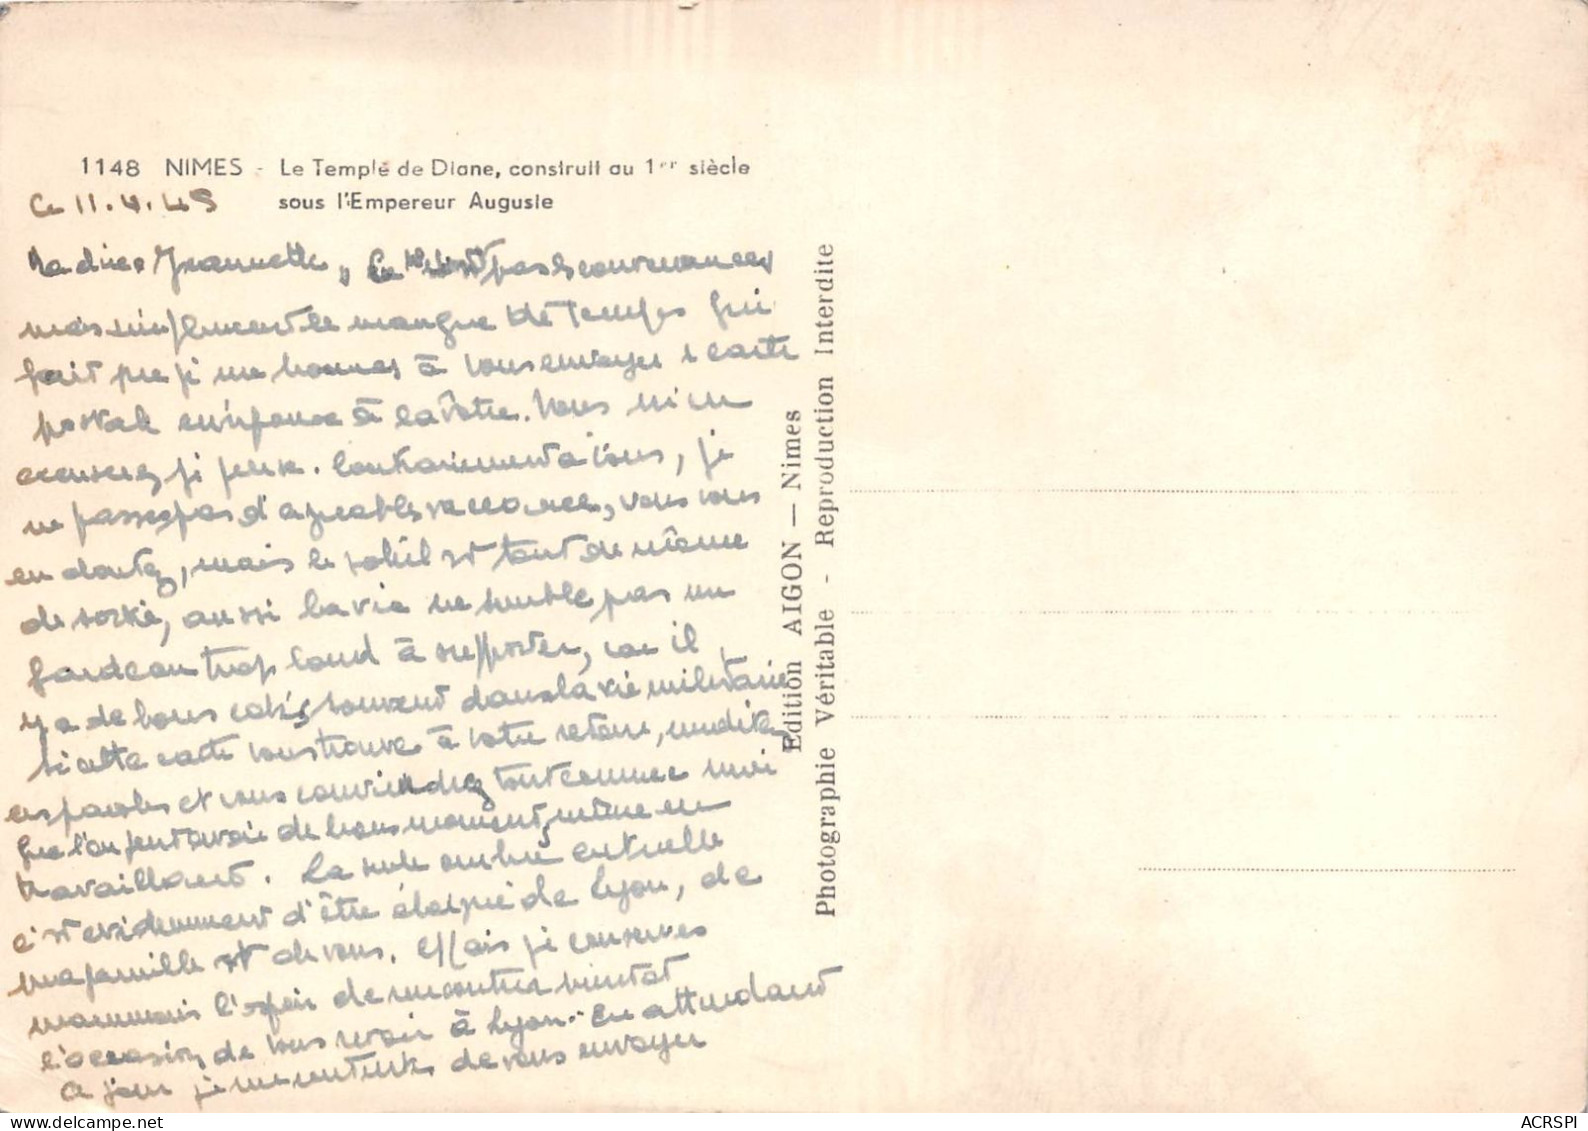 1148 NIMES - Le Temple de Diane, construit au 1er siècle
sous l'Empereur Auguste
Ce 11.4.45
Jeannette, Ce n'est pas les convenances
mais simplement le manque de temps qui
fait que je me bornes à vous envoyer 1 carte
postale en réponse à la vôtre. Vous m'en
excuserez je pense. Contrairement à vous, je
ne passe pas d'agréables vacances, vous vous
en doutez, mais le soleil est tout de même
de sortie, aussi la vie ne semble pas un
fardeau trop lourd à supporter, car il
y a de bons cotés souvent dans la vie militaire
si cette carte vous trouve à votre retour, méditez
ces paroles et vous conviendrez tout comme moi
que l'on peut avoir de bons moments, même en
travaillant. La seule ombre actuelle
c'est évidemment d'être éloigné de Lyon, de
ma famille et de vous. Mais je conserves
néanmoins l'espoir de rencontrer bientot
l'occasion de vous revoir à Lyon. En attendant
ce jour je me contentes de vous envoyer
Edition AIGON — Nimes
Photographie Véritable - Reproduction Interdite
ACRSPI